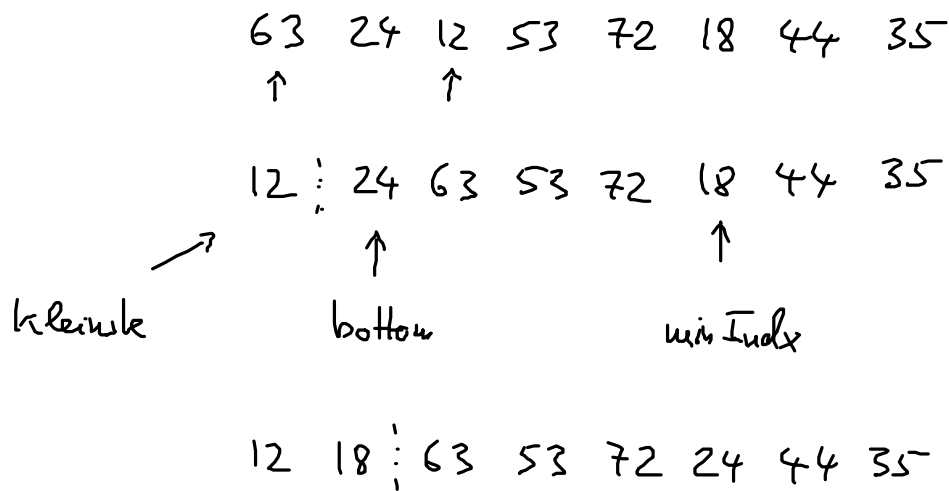 63 24 12 53 72 18 44 35
↑ ↑
12 ⋮ 24 63 53 72 18 44 35
↗ ↑ ↑
kleinste bottom minIndx
12 18 ⋮ 63 53 72 24 44 35